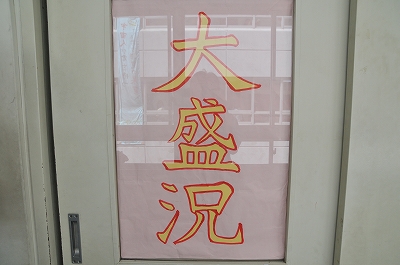 大盛況